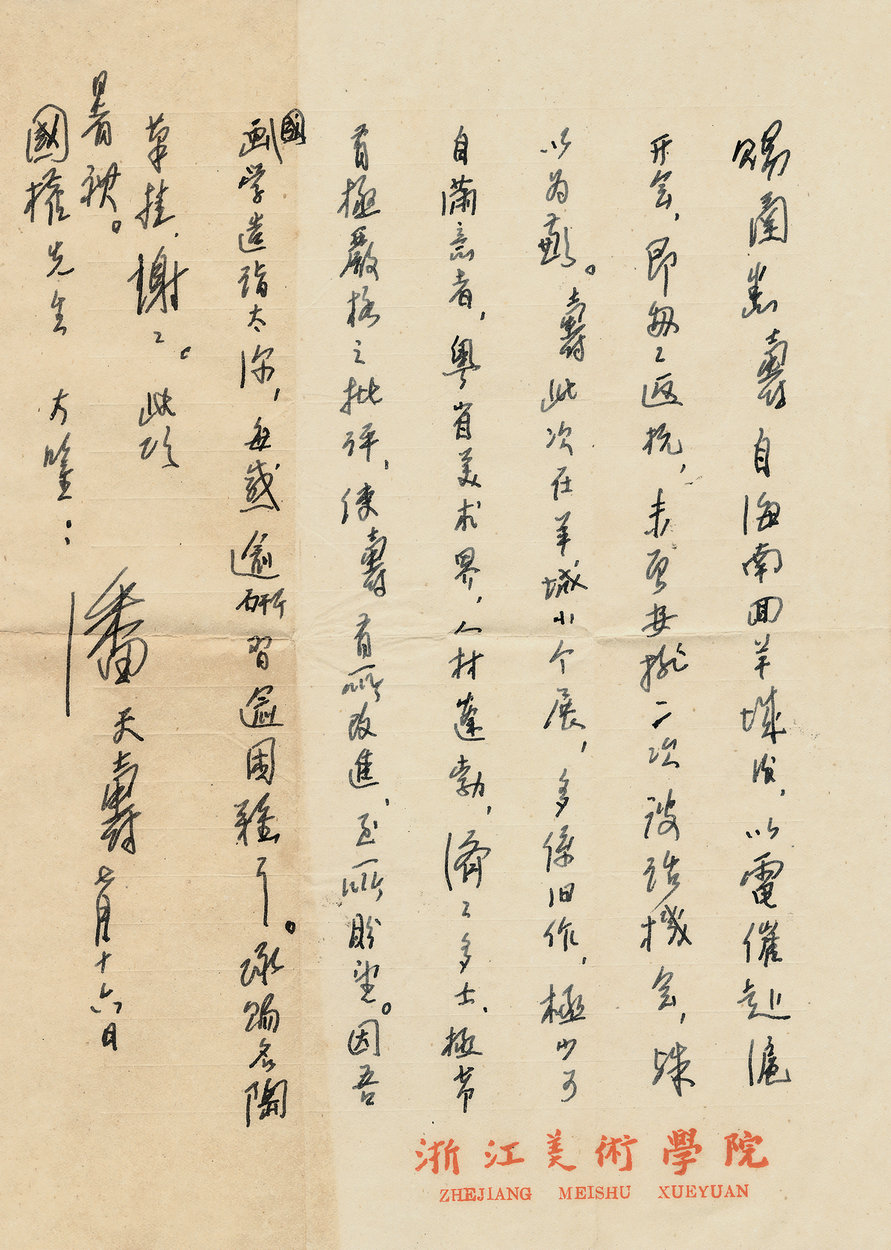 賜函悉壽自海南回羊城后，以電催赴滬
开会，即匆〻返杭，未安排二次谈话機会，殊
以为歉。壽此次在羊城小个展，多係旧作，極少可
自满意者，粤省美术界，人材蓬勃，濟〻多士，極希
有極嚴格之批评，使壽有所改進，至所盼望。因吾
國画学造诣太深，每感逾研習逾困難耳。承赐名陶
挂，謝〻。此颂
暑祺。
國權先生 大鑒：
潘天壽 七月十六日
浙江美術學院
ZHEJIANG MEISHU XUEYUAN